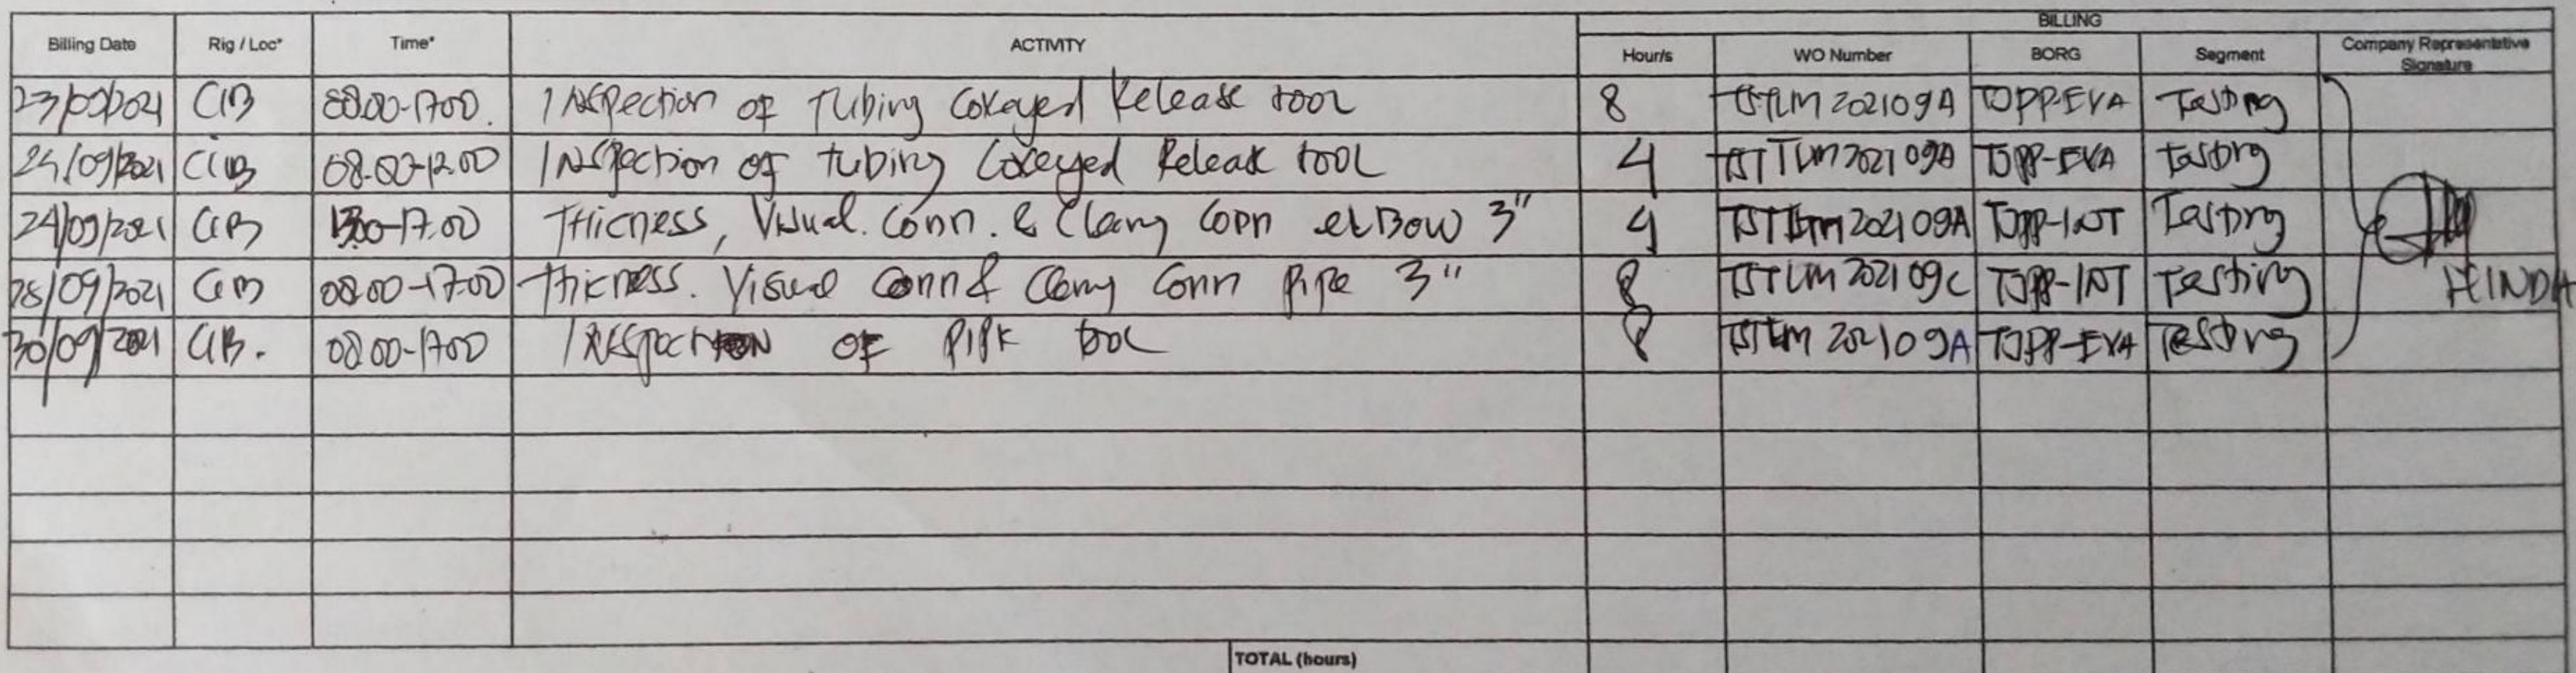 BILLING
Billing Date Rig / Loc* Time* ACTIVITY Hour/s WO Number BORG Segment Company Representative Signature
23/09/2021 CIB 08.00-17.00. Inspection of Tubing Release tool 8 TSTLM 202109A TOPP-EVA Testing
24/09/2021 CIB 08.00-12.00 Inspection of tubing Release tool 4 202109A TOPP-EVA Testing
24/09/2021 CIB 13.00-17.00 Thicness, Visual. Conn. & Conn elBow 3" 4 202109A TOPP-INT Testing
28/09/2021 CIB 08.00-17.00 Thicness. Visual Conn & Conn pipe 3" 8 TSTLM 202109C TOPP-INT Testing
HINDH
30/09/2021 CIB. 08.00-17.00 Inspection OF PIPK tool 8 TSTLM 202109A TOPP-EVA Testing
TOTAL (hours)